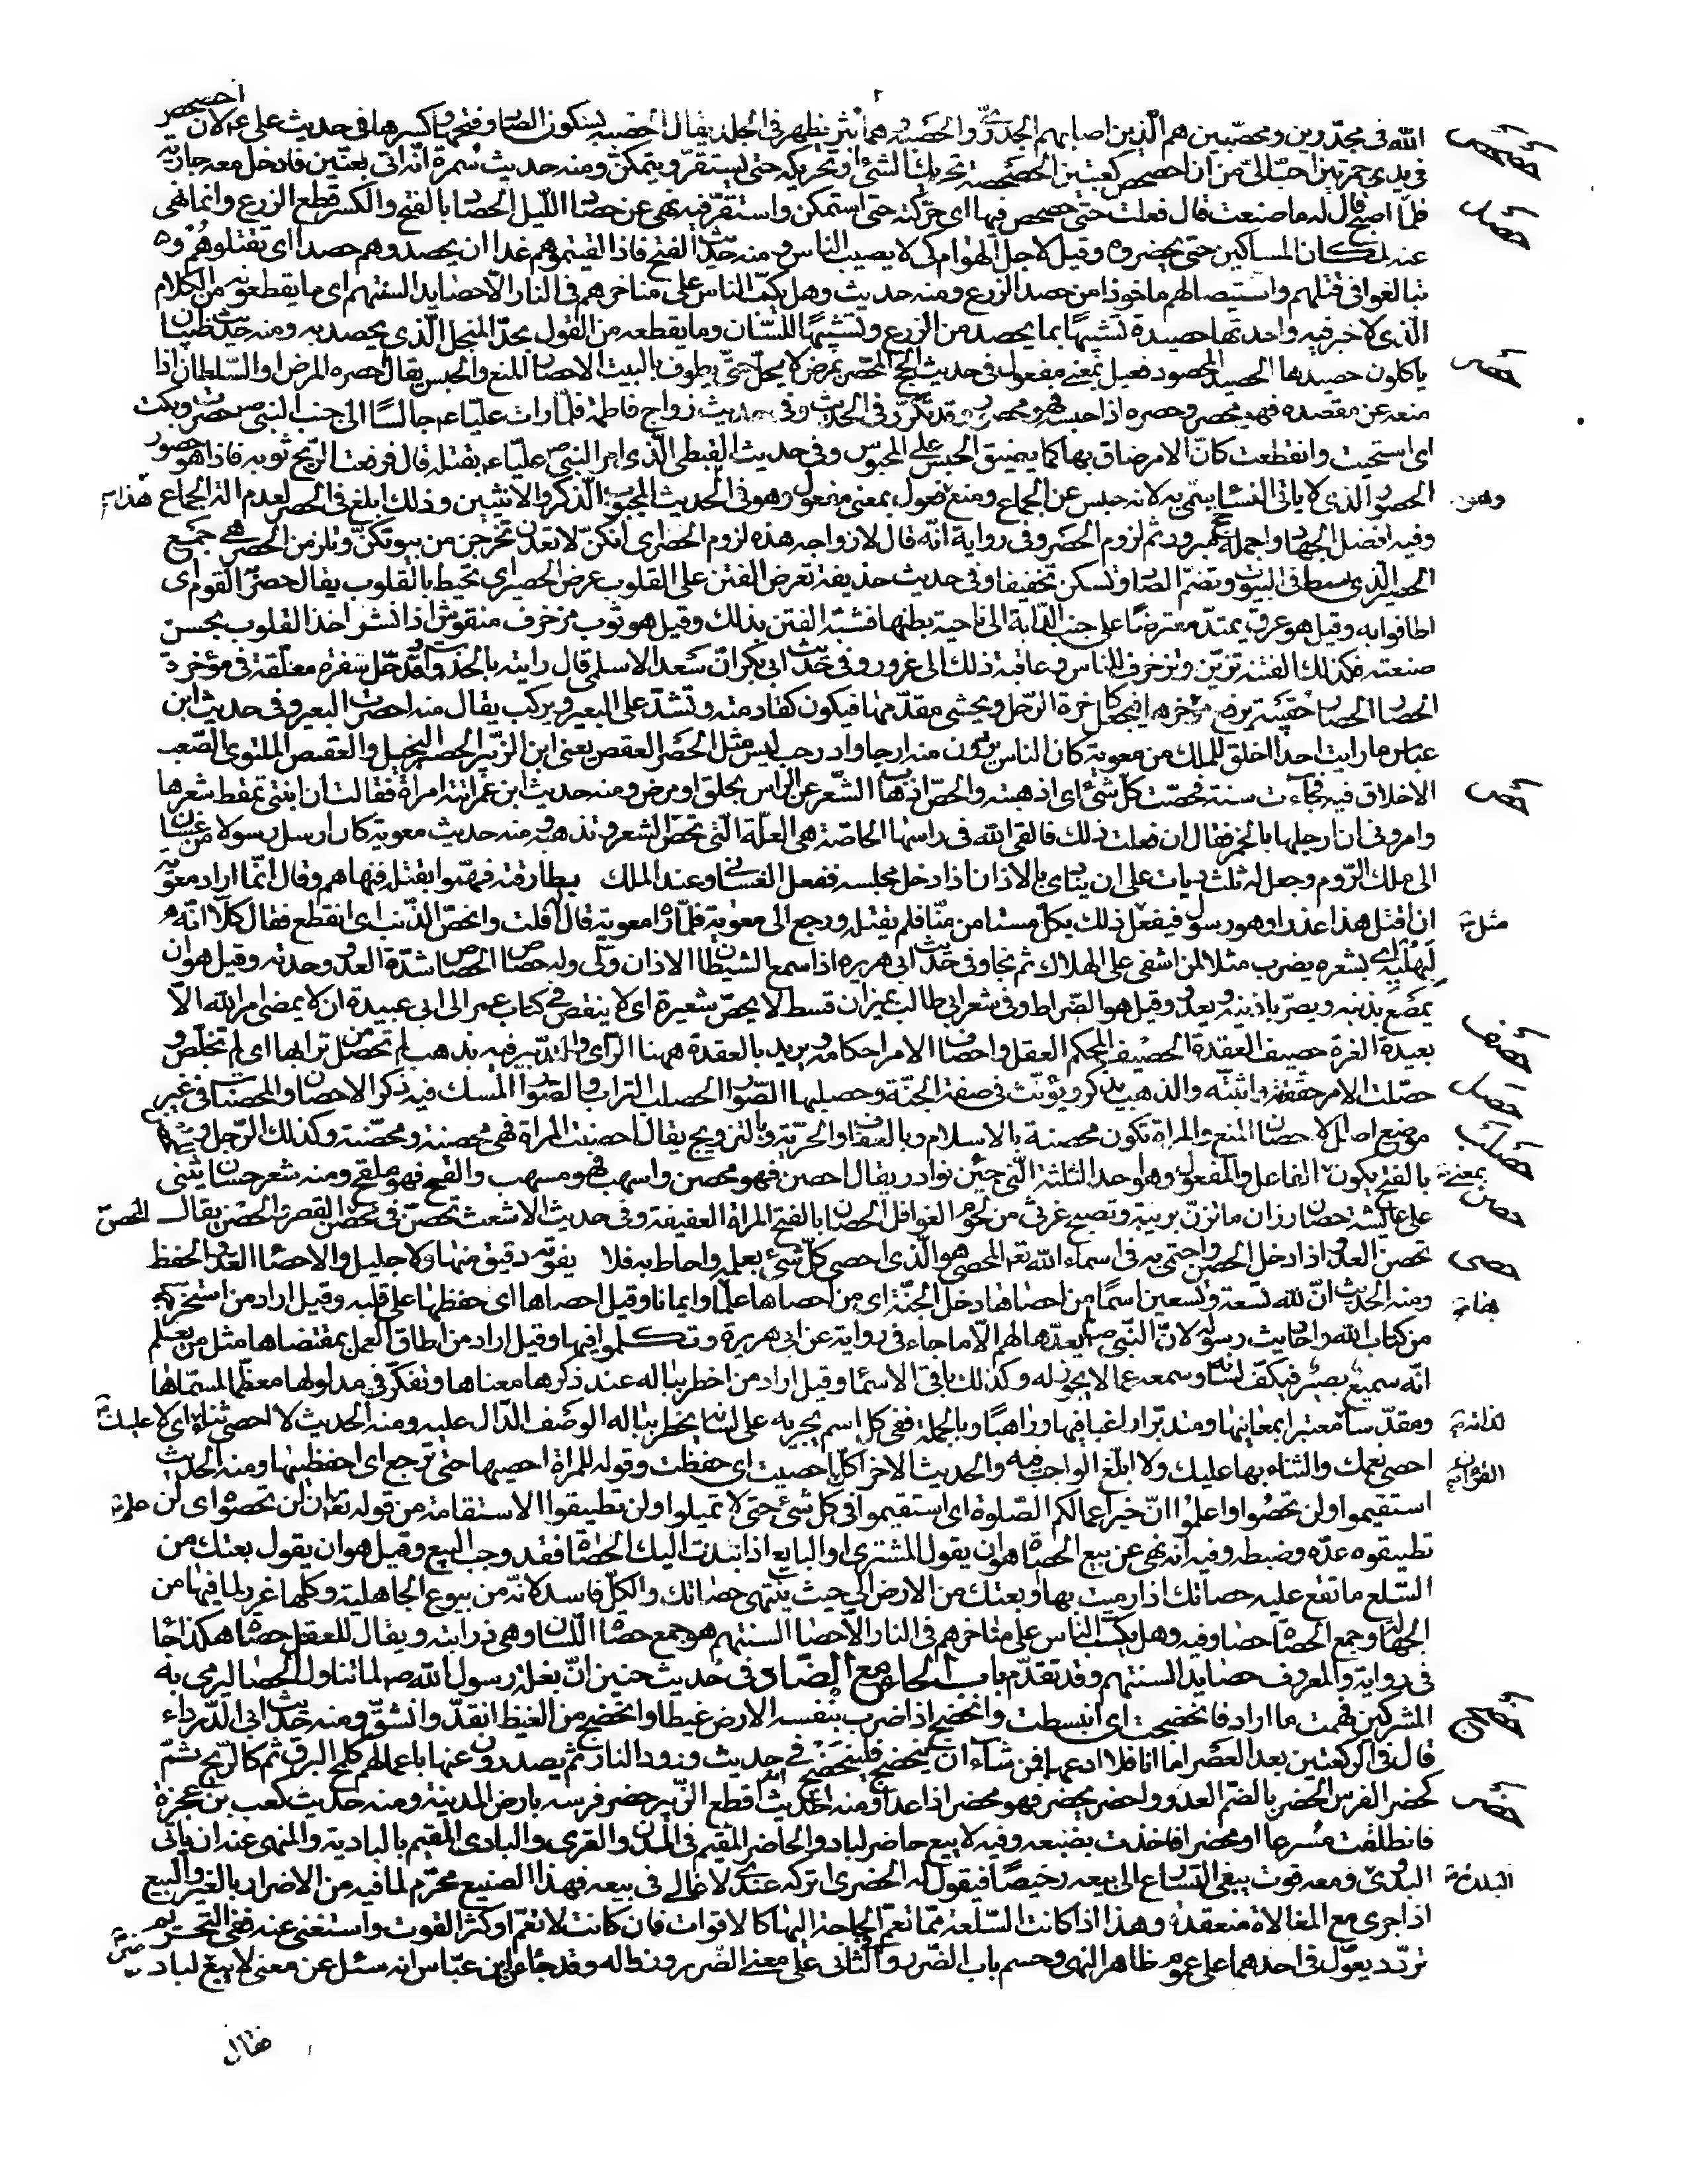 الله في مجدّرين ومحصّبين هم الّذين اصابهم الجدريّ والحصبة وهما بثر يظهر في الجلد يقال الحصبة بسكون الصاد وفتحها وكسرها في حديث علي ع لان احصحص
في يدي جمرتين احبّ اليّ من ان احصحص كعبتين الحصحصة تحريك الشئ او تحريكه حتى يستقرّ ويتمكن ومنه حديث سمرة انّه اتي بعنّين فادخل معه جارية
فلمّا اصبح قال له ما صنعت قال فعلت حتى حصحص فيها اى حركته حتى استمكن واستقرّ فيه نهى عن حصاد الليل الحصاد بالفتح والكسر قطع الزرع وانما نهى
عنه لمكان المساكين حتى يحضروه وقيل لاجل الهوام كى لا يصيب الناس ومنه حديث الفتح فاذا لقيتموهم غدا ان تحصدوهم حصدا اى تقتلوهم و
تبالغوا في قتلهم واستيصالهم ماخوذا من حصد الزرع ومنه حديث وهل يكبّ الناس على مناخرهم في النار الّا حصايد السنتهم اى ما يقطعونه من الكلام
الّذى لا خير فيه واحدتها حصيدة تشبيها بما يحصد من الزرع وتشبيها للسان وما يقطعه من القول بحدّ المنجل الّذي يحصد به ومنه حديث ظبيان
ياكلون حصيدها الحصيد المحصود فعيل بمعنى مفعول في حديث الحج المحصر بمرض لا يحلّ حتى يطوف بالبيت الاحصار المنع والحبس يقال احصره المرض او السّلطان اذا
منعه عن مقصده فهو محصر وحصره اذا حبسه فهو محصور وقد تكرّر في الحديث وفي حديث زواج فاطمة فلمّا رات عليّا ع جالسًا الى جنب النبي ص حصرت وبكت
اى استحيت وانقطعت كانّ الامر ضاق بها كما يضيق الحبس على المحبوس وفي حديث القبطى الّذى امر النبي ص عليّا ع بقتله قال فرفعت الريح ثوبه فاذا هو حصور
الحصور الذي لا ياتى النساء سمّى به لانه حبس عن الجماع ومنع فعول بمعنى مفعول وهو في الحديث المجبوب الذكر والانثيين وذلك ابلغ في الحصر لعدم الة الجماع
وفيه افضل الجهاد واجمله حج مبرور ثم لزوم الحصر وفي رواية انّه قال لازواجه هذه ثم لزوم الحصر اى انكنّ لا تعدن تخرجن من بيوتكنّ وتلزمن الحصر هي جمع
الحصير الّذى يبسط في البيوت وتضمّ الصاد وتسكن تخفيفا وفي حديث حذيفة تعرض الفتن على القلوب عرض الحصير اى تحيط بالقلوب يقال حصر به القوم اى
اطافوا به وقيل هو عرق يمتدّ معترضًا على جنب الدّابة الى ناحية بطنها فشبّه الفتن بذلك وقيل هو ثوب مزخرف منقوش اذا نشر اخذ القلوب بحسن
صنعته فكذلك الفتنة تزيّن وتزخرف للناس وعاقبة ذلك الى غرور وفي حديث ابي بكر انّ سعد الاسلمي قال رايته بالخذوات وقد حلّ سفرة معلّقة في مؤخرة
الحصار الحصار حقيبة يرفع مؤخرها فيجعل كاخرة الرّحل ويحشى مقدّمها فيكون كقادمته وتشدّ على البعير ويركب يقال منه احصرت البعير وفي حديث ابن
عباس ما رايت احدا اخلق للملك من معوية كان الناس يردون منه ارجاء واد رحب ليس مثل الحصر العقص يعني ابن الزبير الحصر البخيل والعقص الملتوي الصعب
الاخلاق فيه فجاءت سنة فحصّت كلّ شئ اى اذهبته والحصّ اذهاب الشّعر عن الراس بحلق او مرض ومنه حديث ابن عمر اتته امراة فقالت انّ ابنتي تمعّط شعرها
وامروني ان ارجلها بالخمر فقال ان فعلت ذلك فالقى الله في راسها الحاصّة هي العلّة التى تحصّ الشعر وتذهبه ومنه حديث معوية كان ارسل رسولا من غسان
الى ملك الرّوم وجعل له ثلث ديات على ان ينادى بالاذان اذا دخل مجلسه ففعل الغسّانى وعند الملك بطارقته فهمّوا بقتله فنهاهم وقال انّما اراد معوية
ان اقتل هذا غدرا وهو رسول فيفعل ذلك بكلّ مستامن منّا فلم يقتله ورجع الى معوية فلمّا رآه معوية قال افلت وانحصّ الذّنب اى انقطع فقال كلّا انّه
لبهلبه اى بشعره يضرب مثلا لمن اشفى على الهلاك ثم نجا وفي حديث ابي هريره اذا سمع الشيطان الاذان ولّى وله حصاص الحصاص شدّة العدو وحدته وقيل هو ان
يمصع بذنبه ويصرّ باذنيه ويعدو وقيل هو الضّراط وفي شعر ابي طالب بميزان قسط لا يحصّ شعيرة اى لا ينقص في كتاب عمر الى ابي عبيدة ان لا يمضى امر الله الّا
بعيدة الغرة حصيف العقدة الحصيف المحكم العقل واحصاف الامر احكامه ويريد بالعقدة ههنا الرّأى والتدبير فيه بذهب لم تحصّل من ترابها اى لم تخلّص و
حصّلت الامر حقّقته واثبتّه والذهب يذكر ويؤنّث في صفة الجنّة وحصلبها الصّوار الحصلب التراب والصّوار المسك فيه ذكر الاحصان والمحصنات في غير
موضع اصل الاحصان المنع والمراة تكون محصنة بالاسلام وبالعفاف والحرّية وبالتزويج يقال احصنت المراة فهي محصنة ومحصّنة وكذلك الرّجل
بالفتح يكون الفاعل والمفعول وهو احد الثلثة الّتى جئن نوادر يقال احصن فهو محصن واسهب فهو مسهب والفج فهو ملفج ومنه شعر حسان يثنى
على عايشة حصان رزان ما تزنّ بريبة وتصبح غرثى من لحوم الغوافل الحصان بالفتح المراة العفيفة وفي حديث الاشعث تحصّن في محصن القصر والحصن يقال
تحصن العدو اذا دخل الحصن واحتمى به في اسماء الله تع المحصي هو الّذى احصى كلّ شئ بعلمه واحاط به فلا يفوته دقيق منها ولا جليل والاحصاء العدّ والحفظ
ومنه الحديث انّ لله تسعة وتسعين اسمًا من احصاها دخل الجنّة اى من احصاها علمًا وايمانا وقيل احصاها اى حفظها على قلبه وقيل اراد من استخرجها
من كتاب الله واحاديث رسوله لانّ النّبى ص لم يعدّها لهم الّا ما جاء في رواية عن ابي هريرة وتكلموا فيها وقيل اراد من اطاق العمل بمقتضاها مثل من يعلم
انّه سميع بصير فيكفّ لسانه وسمعه عما لا يجوز له وكذلك باقي الاسماء وقيل اراد من اخطر بباله عند ذكرها معناها وتفكّر في مدلولها معظما لمسمّاها
ومقدّسا معتبرا بمعانيها ومتدبّرا راغبا فيها وراهبًا وبالجملة ففي كل اسم يجريه على لسانه يخطر بباله الوصف الدّال عليه ومنه الحديث لا احصى ثناء عليك اى لا
احصى نعمك والثناء بها عليك ولا ابلغ الواجب فيه والحديث الاخر اكلّ القرآن احصيت اى حفظت وقوله للمراة احصيها حتى نرجع اى احفظيها ومنه الحديث
استقيموا ولن تحصوا واعلموا انّ خير اعمالكم الصّلوة اى استقيموا في كل شئ حتى لا تميلوا ولن تطيقوا الاستقامة من قوله تعالى ان لن تحصوه اى لن
تطيقوه عدّه وضبطه وفيه انه نهى عن بيع الحصاة هو ان يقول المشترى او البايع اذا نبذت اليك الحصاة فقد وجب البيع وقيل هو ان يقول بعتك من
السّلع ما تقع عليه حصاتك اذا رميت بها او بعتك من الارض الى حيث ينتهى حصاتك والكلّ فاسد لانّه من بيوع الجاهلية وكلها غرر لما فيها من
الجهالة وجمع الحصاة حصا وفيه وهل يكبّ الناس على مناخرهم في النار الّا حصا السنتهم هو جمع حصاة اللسان وهي ذرابته ويقال للعقل حصاة هكذا جا
في رواية والمعروف حصايد السنتهم وقد تقدّم باب الحاء مع الضاد في حديث حنين انّ بغلة رسول الله ص لما تناول الحصا ليرمى به
المشركين فهمت ما اراد فانحضجت اى انبسطت وانحضج اذا ضرب بنفسه الارض غيظا وانحضج من الغيظ انقدّ وانشقّ ومنه حديث ابي الدّرداء
قال في الركعتين بعد العصر اما انا فلا ادعهما فمن شاء ان ينحضج فلينحضج في حديث ورود النار ثم يصدرون عنها باعمالهم كلمح البرق ثم كالريح ثمّ
كحضر الفرس الحضر بالضمّ العدو واحضر يحضر فهو محضر اذا عدا ومنه الحديث انه اقطع الزّبير حضر فرسه بارض المدينة ومنه حديث كعب بن عجرة
فانطلقت مسرعا او محضرا فاخذت بضبعه وفيه لا يبيع حاضر لباد الحاضر المقيم في المدن والقرى والبادى المقيم بالبادية والمنهى عنه ان ياتى
البدوى البلدة ومعه قوت يبغى التسارع الى بيعه رخيصًا فيقول له الحضرى اتركه عندى لاغالى في بيعه فهذا الصنيع محرّم لما فيه من الاضرار بالغير والبيع
اذا جرى مع المغالاة منعقد وهذا اذا كانت السّلعة ممّا تعمّ الحاجة اليها كالاقوات فان كانت لا تعمّ او كثر القوت واستغنى عنه ففى التحريم
تردّد يعوّل في احدهما على عموم ظاهر النهى وحسم باب الضّرر والثانى على معنى الضّرر وزواله وقد جاء عن ابن عبّاس انه سئل عن معنى لا يبيع لباد
فقال